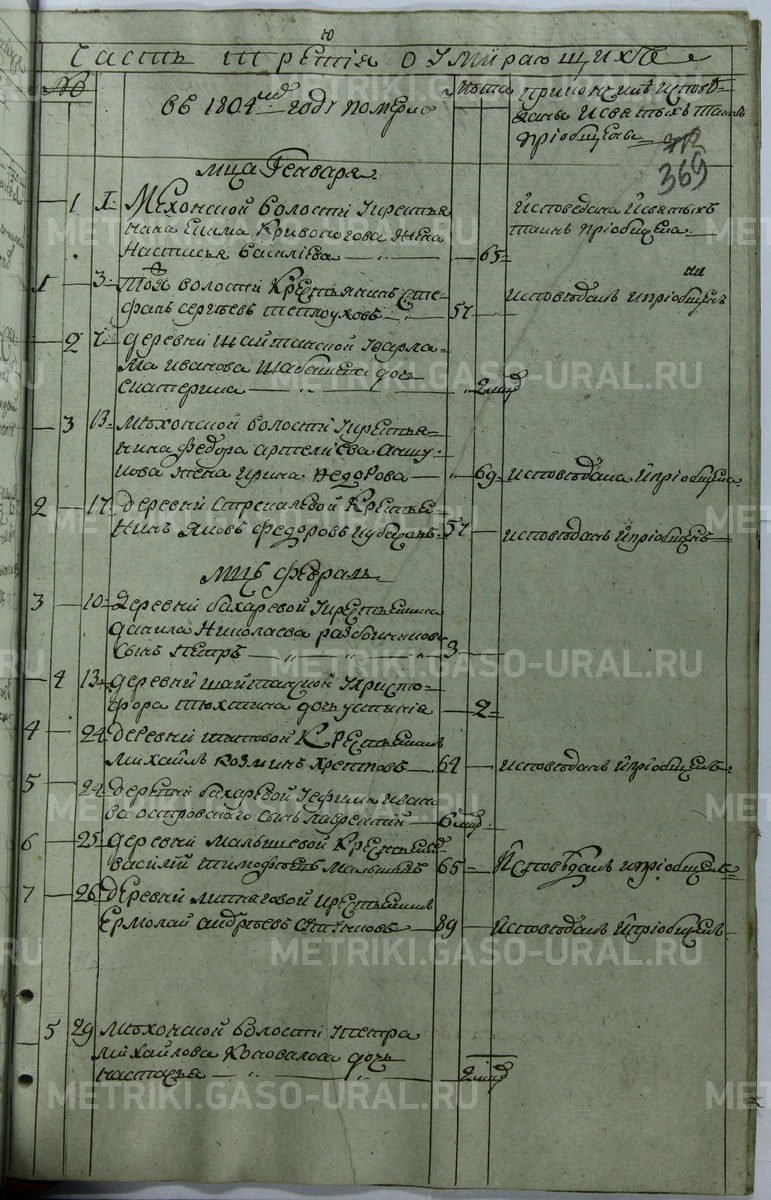 Часть третiя о умирающихъ
№
въ 1804мъ годѣ померло
Лѣта
При кончинѣ исповѣ-
даны и святыхъ таинъ
прiобщены
369
мца Генваря
1 1 Мехонской волости крестья-
нина Екима Кривоногова жена
Настасья Василiева 65
Исповедана и святыхъ
таинъ прiобщена
1 3 Той волости крестьянинъ Сте-
фанъ Сергѣевъ Теплоуховъ 57
исповѣданъ и прiобщенъ
2 7 деревни Шайтанской Варла-
ма Иванова дочь
Екатерина 2 мцд
3 13 Мѣхонской волости крестья-
нина Федора
жена Ирина Федорова 69 исповѣдана и прiобщена
2 17 деревни Стрекалевой крестья-
нинъ Яковъ Федоровъ 57 исповѣданъ и прiобщенъ
мцъ Февраль
3 10 деревни Бахаревой крестьянина
Данила Николаева Разбойникова
сынъ Петръ 3
4 13 деревни Шайтанской Христо-
фора Тюхтина дочь Устинiя 2
4 24 деревни Титовой крестьянинъ
Михайлъ Козминъ 64 исповѣданъ и прiобщенъ
5 24 деревни Бахаревой Ефима Ивано-
ва Островскаго сынъ Лаврентiй 6 мцд
6 25 деревни Малышевой крестьянинъ
Василiй Тимофѣевъ Малышевъ 65 Исповѣданъ и прiобщенъ
7 26 деревни крестьянинъ
Ермолай Андрѣевъ 89 Исповѣданъ и прiобщенъ
5 29 Мѣхонской волости Петра
Михайлова Коновалова дочь
Настасья 2 мцд
METRIKI.GASO-URAL.RU